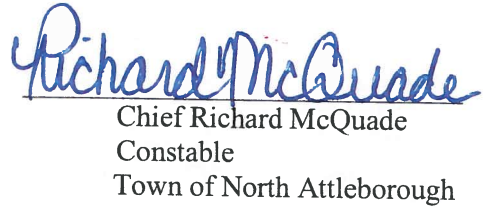 Richard McQuade
Chief Richard McQuade
Constable
Town of North Attleborough